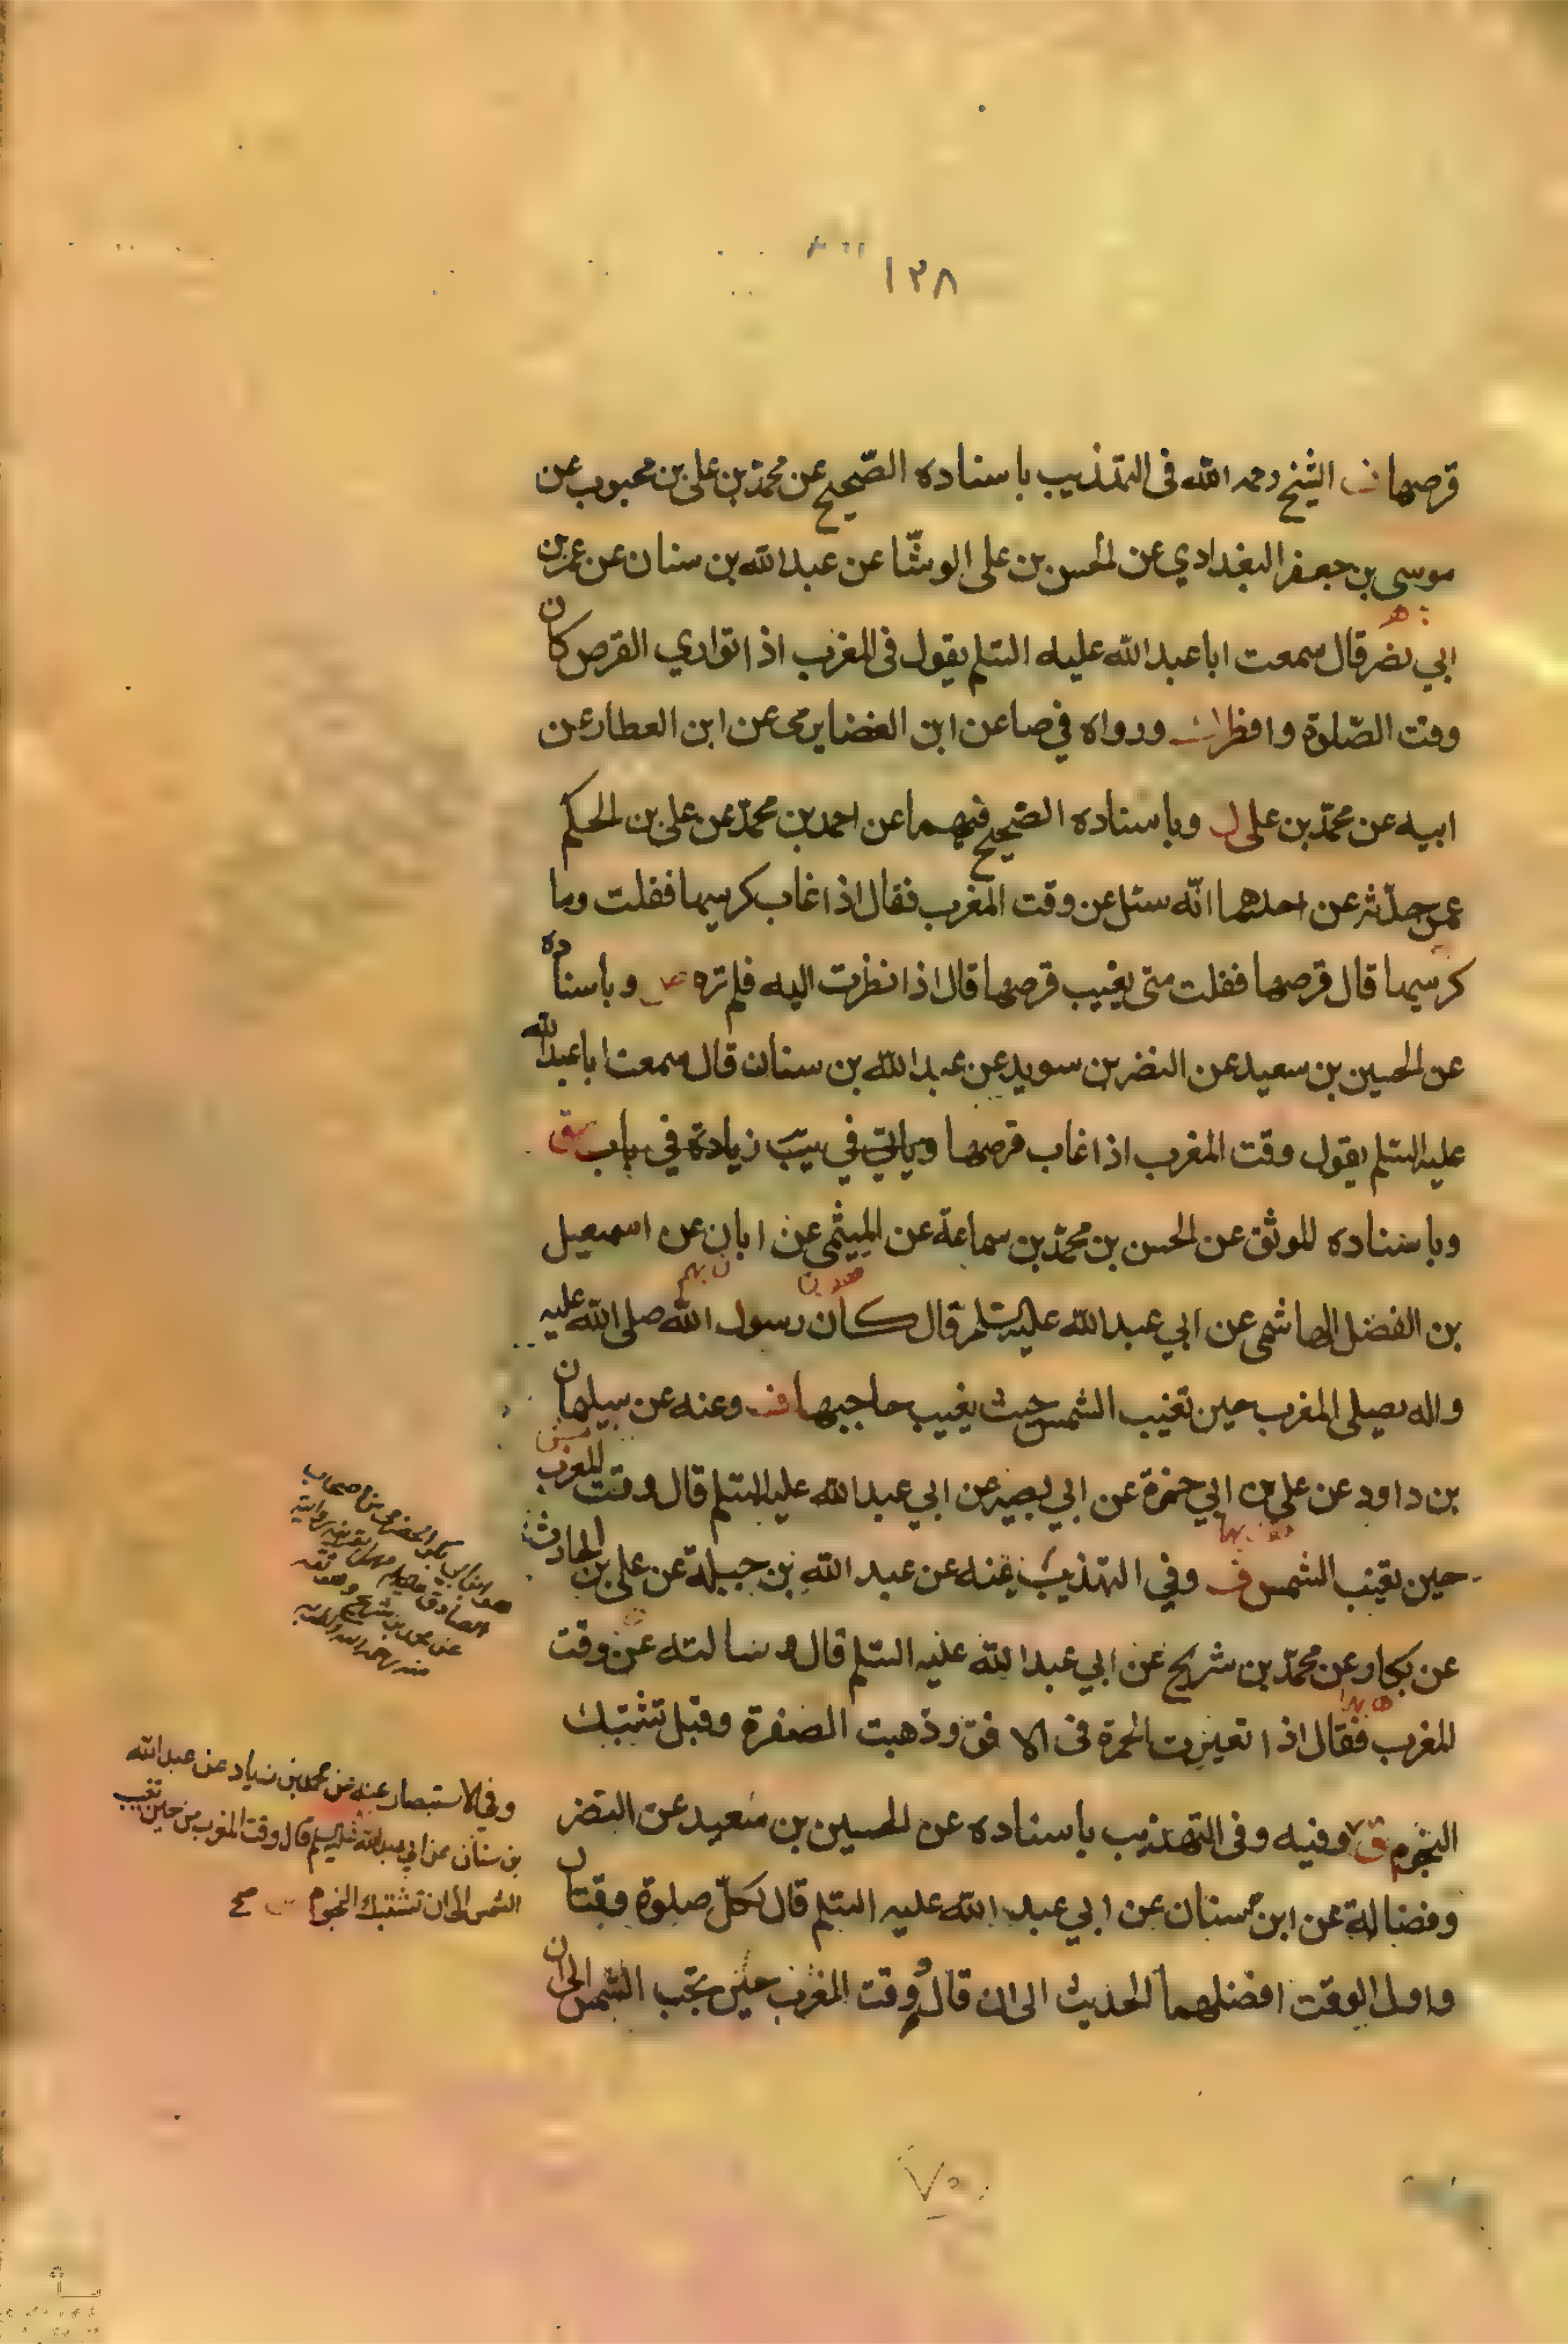 ١٣٨
قرصها الشيخ رحمه الله فى التهذيب باسناده الصّحيح عن محمّد بن على بن محبوب عن
موسى بن جعفر البغدادي عن الحسن بن على الوشّا عن عبد الله بن سنان عن عمر بن
ابي نصر قال سمعت ابا عبد الله عليه السّلم يقول فى المغرب اذا تواري القرص كان
وقت الصّلوة وافطر ورواه في صا عن ابن الغضايرى عن ابن العطار عن
ابيه عن محمّد بن على ل وباسناده الصّحيح فيهما عن احمد بن محمّد عن على بن الحكم
عمن حدّثه عن احدهما انّه سئل عن وقت المغرب فقال اذا غاب كرسيها فقلت وما
كرسيها قال قرصها فقلت متى يغيب قرصها قال اذا نظرت اليه فلم تره وباسناده
عن الحسين بن سعيد عن النضر بن سويد عن عبد الله بن سنان قال سمعت ابا عبد الله
عليه السّلم يقول وقت المغرب اذا غاب قرصها وياتي في زيادة في باب
وباسناده الموثق عن الحسن بن محمّد بن سماعة عن الميثمى عن ابان عن اسمعيل
بن الفضل الهاشمى عن ابي عبد الله عليه السّلم قال كان رسول الله صلى الله عليه
واله يصلى المغرب حين تغيب الشمس حيث يغيب حاجبها وعنه عن سليمان
بن داود عن على بن ابي حمزة عن ابي بصير عن ابي عبد الله عليه السّلم قال وقت المغرب
حين تغيب الشمس ف وفي التهذيب عنه عن عبد الله بن جبلة عن على بن الحارث
عن بكار عن محمّد بن شريح عن ابي عبد الله عليه السّلم قال سالته عن وقت
المغرب فقال اذا تغيرت الحمرة فى الافق وذهبت الصفرة وقبل تشتبك
النجوم ق وفيه وفى التهذيب باسناده عن الحسين بن سعيد عن النضر
وفضالة عن ابن سنان عن ابي عبد الله عليه السّلم قال لكلّ صلوة وقتان
واول الوقت افضلهما الحديث الى ان قال ووقت المغرب حين تجب الشمس الى ان
وفي الاستبصار عنه عن محمد بن زياد عن عبد الله
بن سنان عن ابي عبد الله عليه السلم قال وقت المغرب من حين تغيب
الشمس الى ان تشتبك النجوم صح